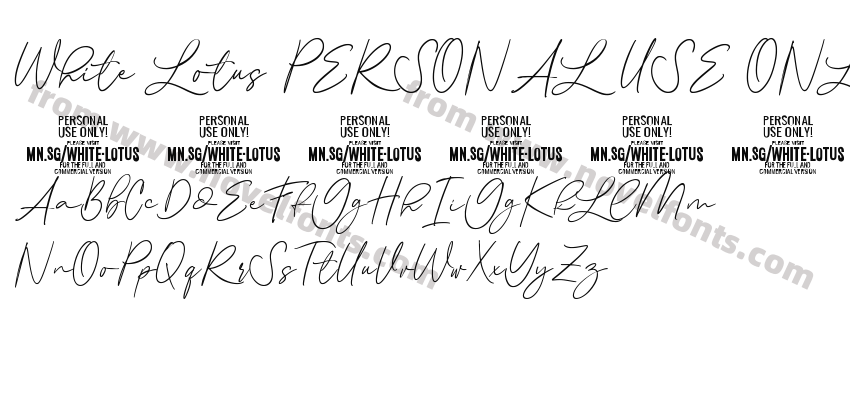 White Lotus PERSONAL USE ONL
PERSONAL PERSONAL PERSONAL PERSONAL PERSONAL PERSONAL
USE ONLY! USE ONLY! USE ONLY! USE ONLY! USE ONLY! USE ONLY!
PLEASE VISIT PLEASE VISIT PLEASE VISIT PLEASE VISIT PLEASE VISIT PLEASE VISIT
MN.SG/WHITE-LOTUS MN.SG/WHITE-LOTUS MN.SG/WHITE-LOTUS MN.SG/WHITE-LOTUS MN.SG/WHITE-LOTUS MN.SG/WHITE-LOTUS
FOR THE FULL AND FOR THE FULL AND FOR THE FULL AND FOR THE FULL AND FOR THE FULL AND FOR THE FULL AND
COMMERCIAL VERSION COMMERCIAL VERSION COMMERCIAL VERSION COMMERCIAL VERSION COMMERCIAL VERSION COMMERCIAL VERSION
AaBbCcDdEeFfGgHhIiGgKkLlMm
NnOoPpQqRrSsTtUuVvWwXxYyZz
from www.novelfonts.com
from www.novelfonts.com